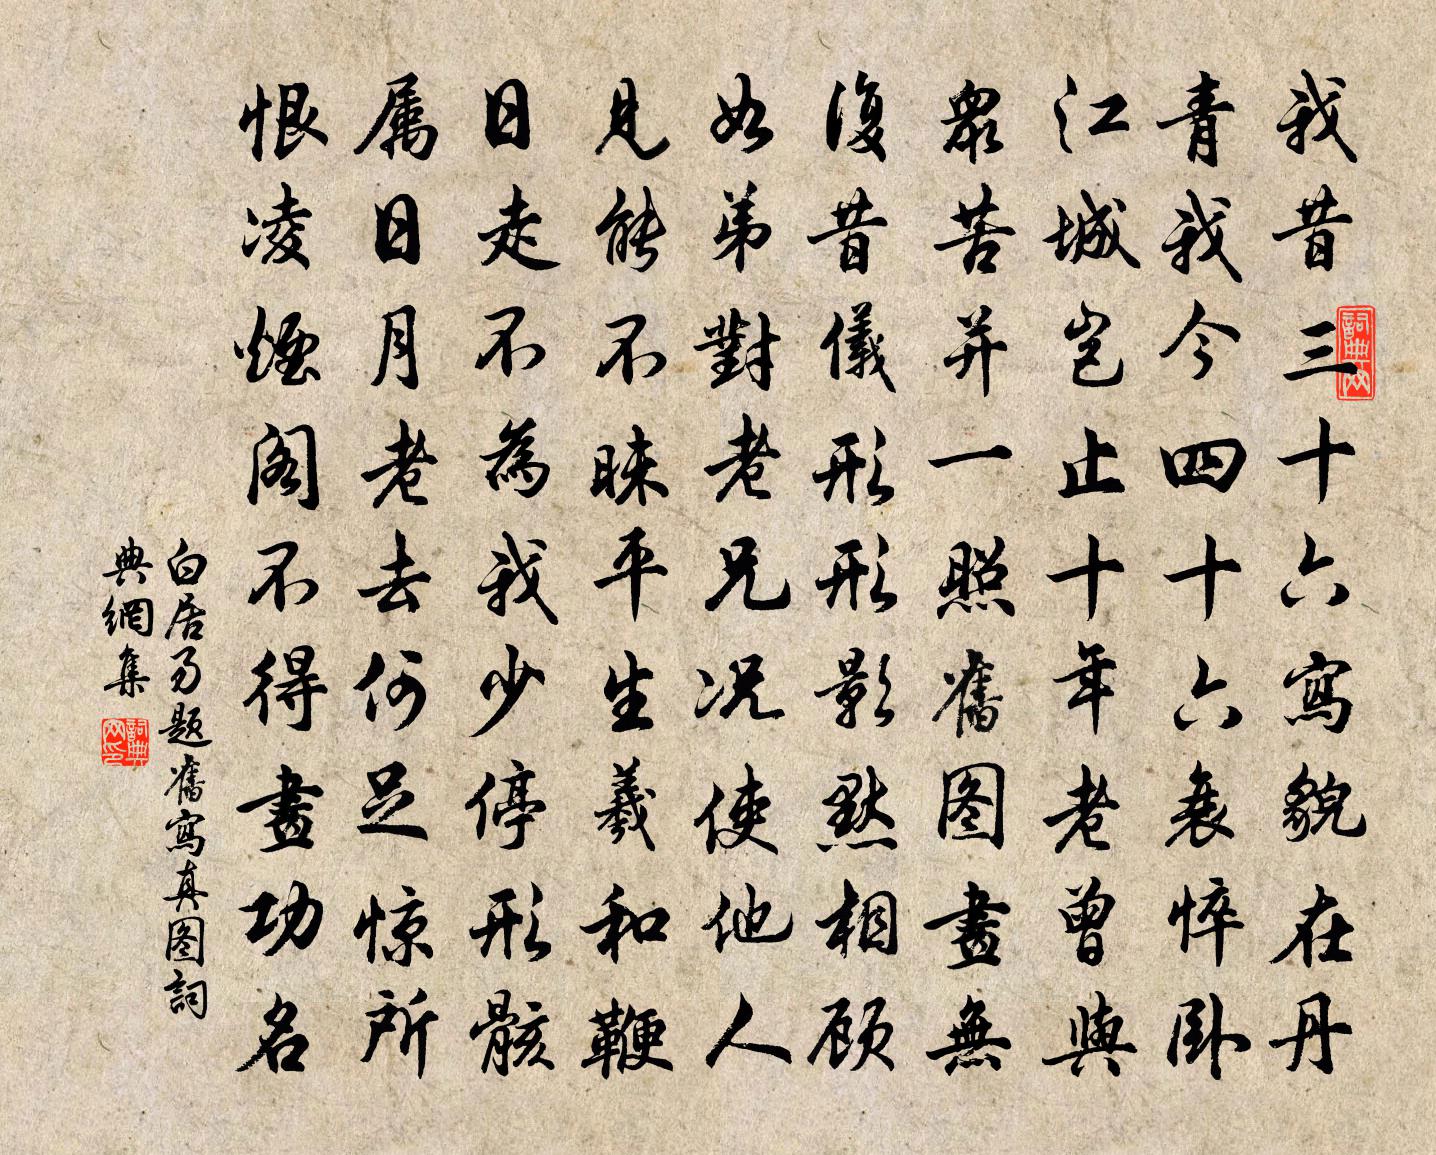 我昔三十六寫貌在丹
青我今四十六衰悴卧
江城岂止十年老曾與
衆苦并一照舊图畫無
復昔儀形形影默相顾
如弟對老兄况使他人
見能不昧平生羲和鞭
日走不為我少停形骸
属日月老去何足惊所
恨凌煙阁不得畫功名
白居易题舊寫真图詞
典網集
詞典网
詞典网印